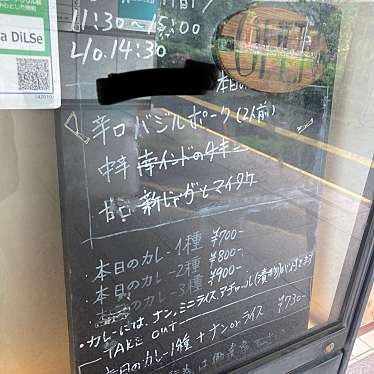 11:30〜15:00
L.O.14:30
a DiLSe
OPEN
本日の
辛口 バジルポーク(2人前)
中辛 南インドのチキー
甘口 新じゃがとマイタケ
・本日のカレー1種 ¥700-
・本日のカレー2種 ¥800-
・本日のカレー3種 ¥900-
・カレーには、ナン、ミニライス、アチャール(漬物)が付きます
TAKE OUT
本日のカレー1種 + ナン or ライス ¥730-